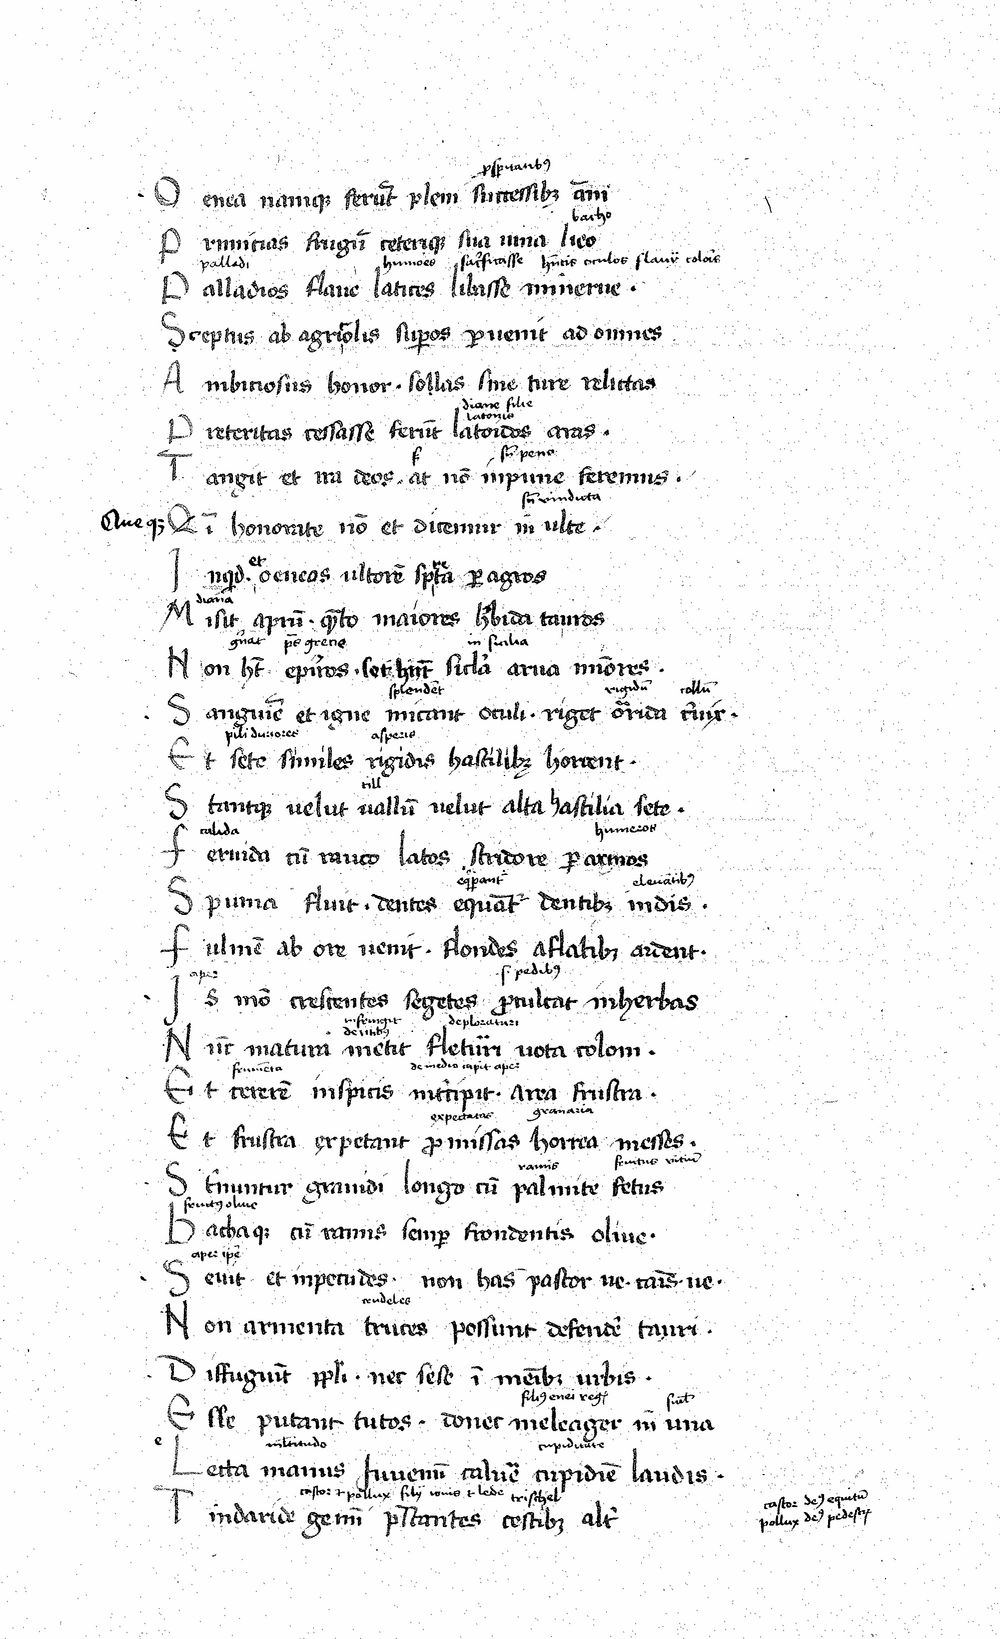 ꝓsꝑitatibꝰ
O enea namqꝫ ferūt pleni successibꝫ āni
bacho
P rimicias frugū ceteriqꝫ sua uina lieo
palladi humores
P alladios flaue latices libasse minerue ·
S ceptus ab agricolis suꝑos ꝑuenit ad omnes
A mbiciosus honor · sollas sine ture relictas
diane filie
latonis
P reteritas cessasse ferūt latoidos aras ·
s̄ pena
T angit et ira deos · at nō inpune feremus ·
s̄ vindicta
Que qꝫ Q ī honorate nō et dicemur in ulte ·
et
I nqid · oeneos ultorē spreta ꝑ agros
diana
M isit aprū · q̄to maiores h̓bida tauros
pͨs grecie in sicilia
N on hēt epiros · set hn̄t sicla arua minores ·
splendēt rigidū collū
S anguīe et igne micant oculi · riget orrida ceruix ·
pili duriores asperis
E t sete similes rigidis hastilibꝫ horrent ·
S tantqꝫ uelut uallū uelut alta hastilia sete ·
calida humeros
F eruida cū rauco latos stridore ꝑ armos
eqꝑant̄ elevātibꝰ
S puma fluit · dentes equāt̄ dentibꝫ indis ·
F ulmē ab ore uenit · frondes aflatibꝫ ardent ·
aper s̄ pedibꝰ
I s mō crescentes segetes ꝓculcat inherbas
infringit deploraturi
dentibꝰ
N ūc matura metit fleturi uota coloni ·
frumēta de medio capit aper
E t cererē inspicis int̓cipit · area frustra ·
expectatas granaria
E t frustra expetant ꝓmissas horrea messes ·
ramis fructus vitiū
S t̓nuntur grauidi longo cū palmite fetus
fructꝰ oliue
B achaqꝫ cū ramis semꝑ frondentis oliue ·
aper ip̄e
S euit et inpecudes · non has pastor ue · canis ue ·
crudeles
N on armenta truces possunt defendē tauri ·
D iffugiūt ppli · nec sese ī menibꝫ urbis ·
filiꝰ enei regꝭ simul
E sse putant tutos · donec meleager in una
multitudo cupiditate
L ecta manus Juuenū caluēr cupidīe laudis ·
castor ⁊ pollux filij iouis ⁊ lede
T indaride gemī p̄stantes cestibꝫ alt̓
castor deꝰ equitū
pollux deꝰ pedestꝭ